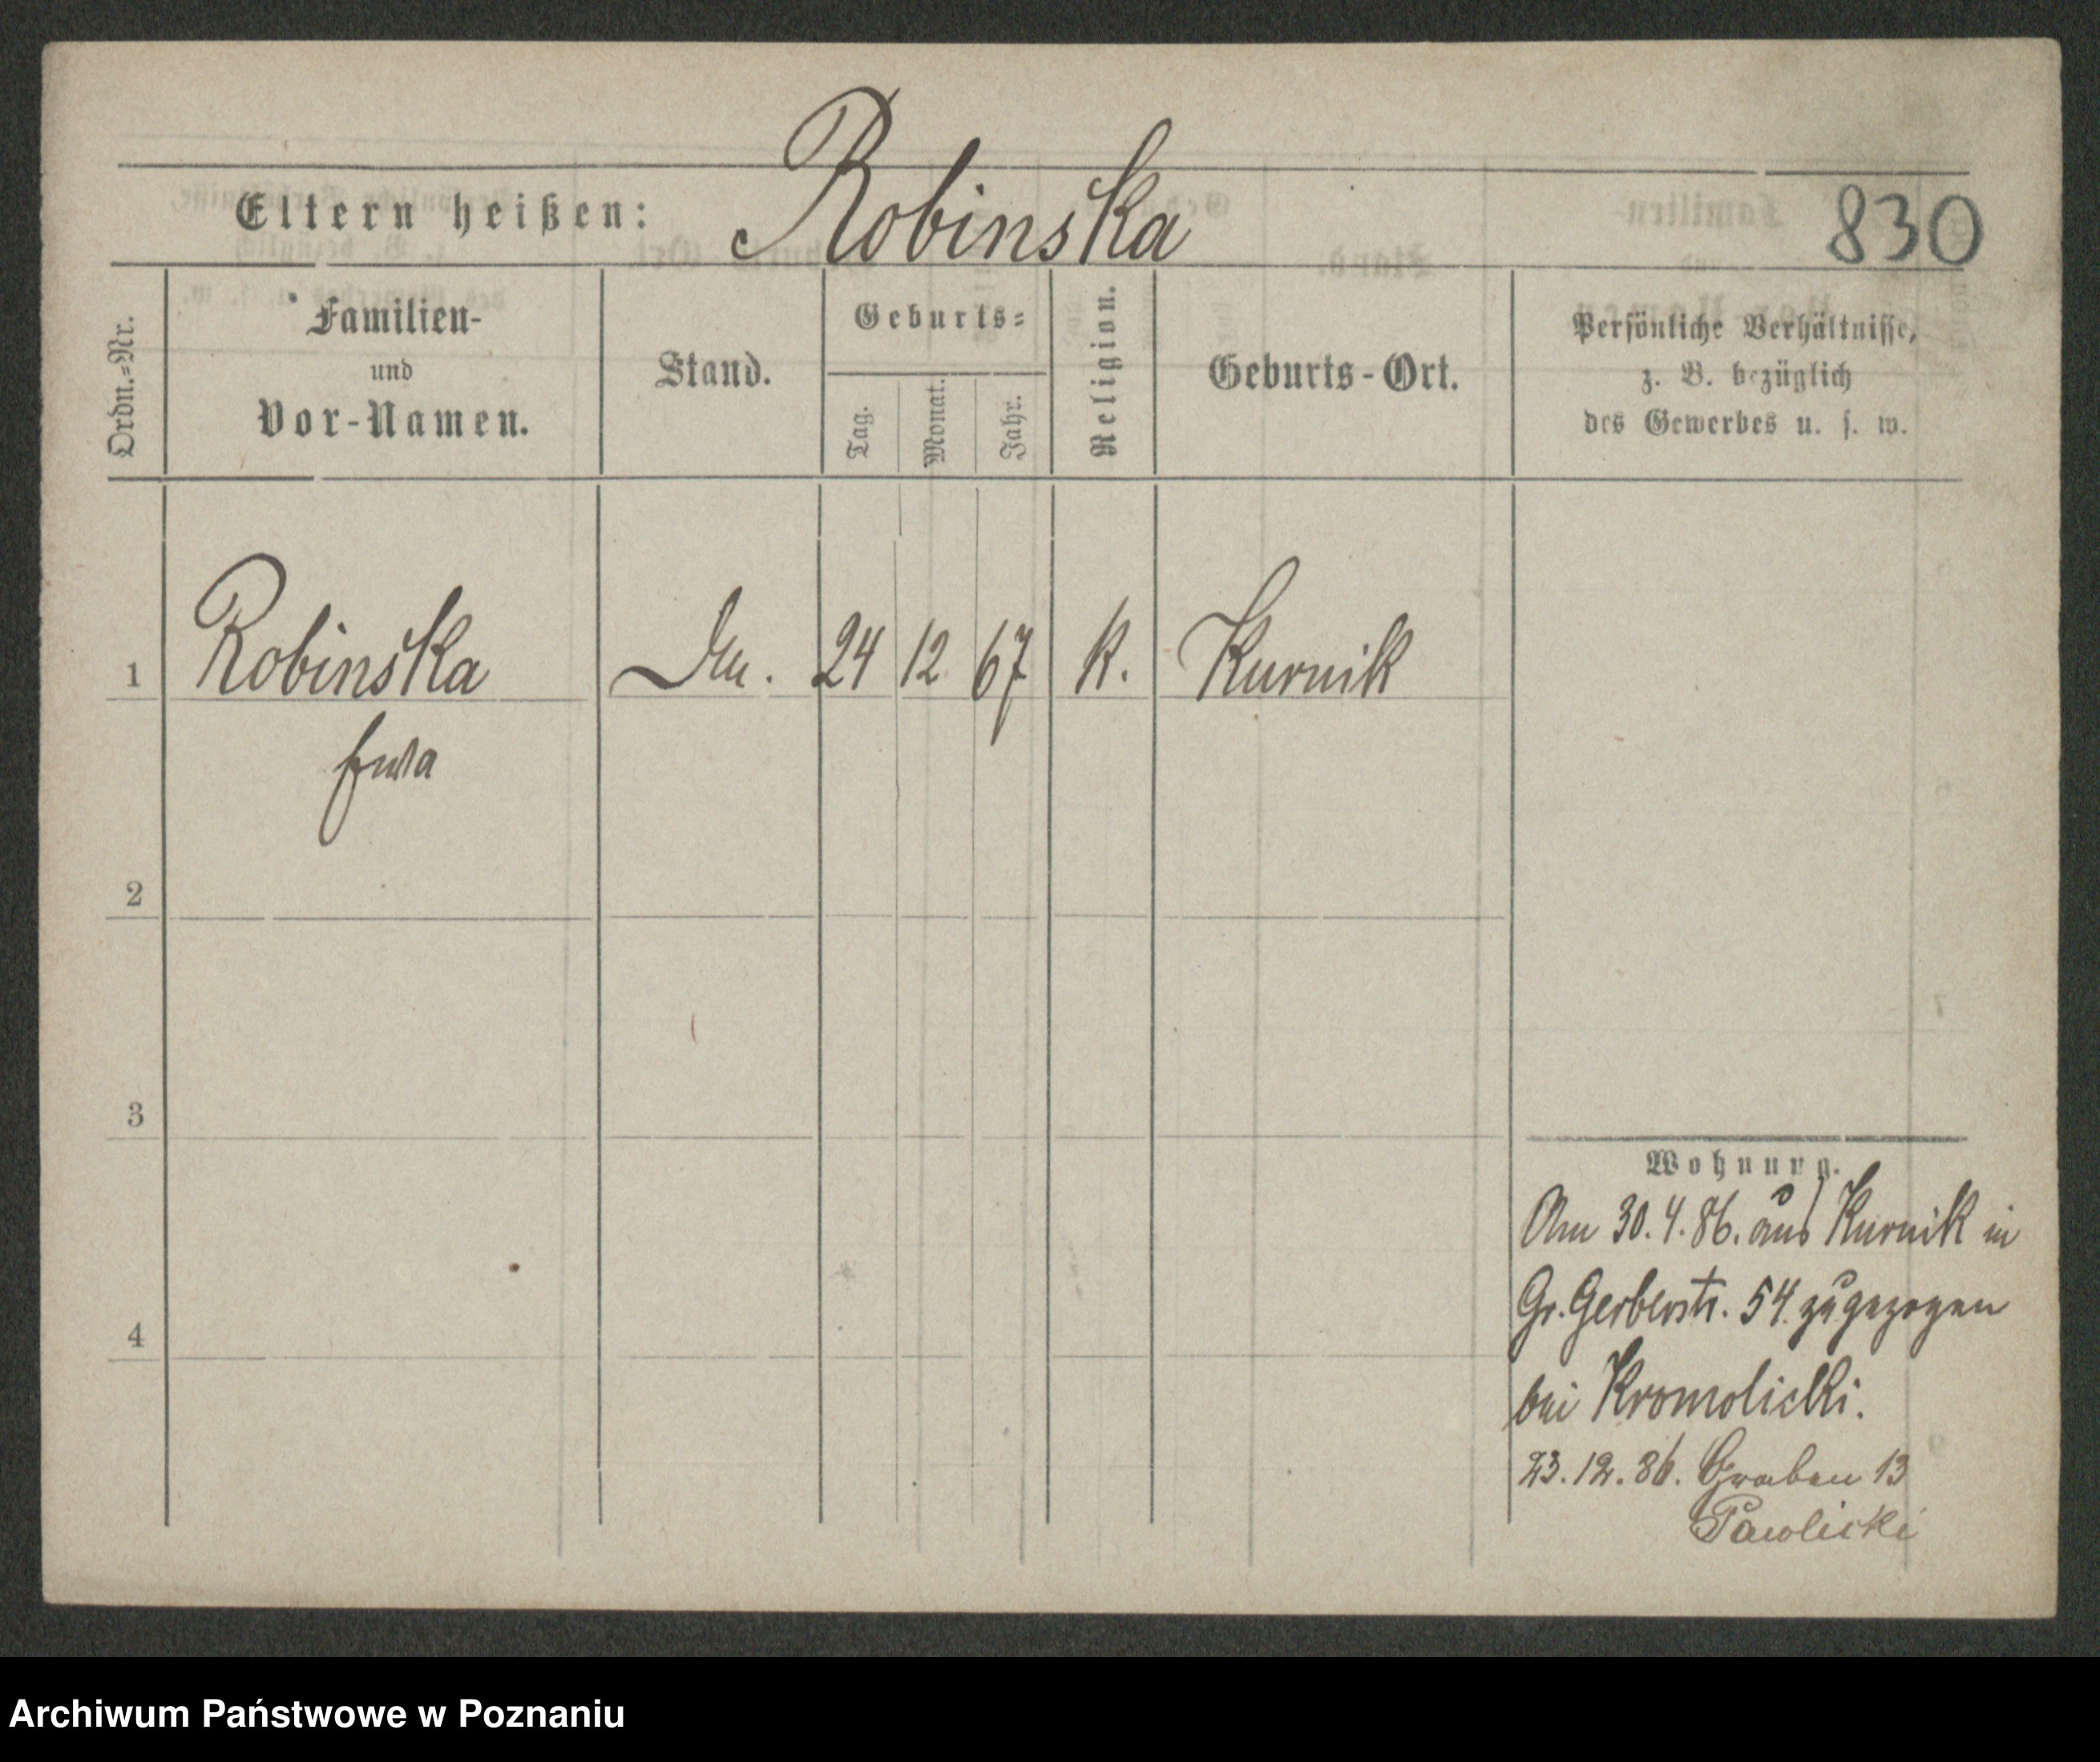 Eltern heißen: Robinska 830
Ordn.=Nr.
Familien-
und
Vor-Namen.
Stand.
Geburts=
Tag.
Monat.
Jahr.
Religion.
Geburts-Ort.
Persönliche Verhältnisse,
z. B. bezüglich
des Gewerbes u. s. w.
1 Robinska 24 12 67 k. Kurnik
2
3
4
Wohnung.
Am 30.4.86. aus Kurnik in
Gr. Gerberstr. 54 zugezogen
bei Kromolicki.
23.12.86. Graben 13
Pawlicki
Archiwum Państwowe w Poznaniu